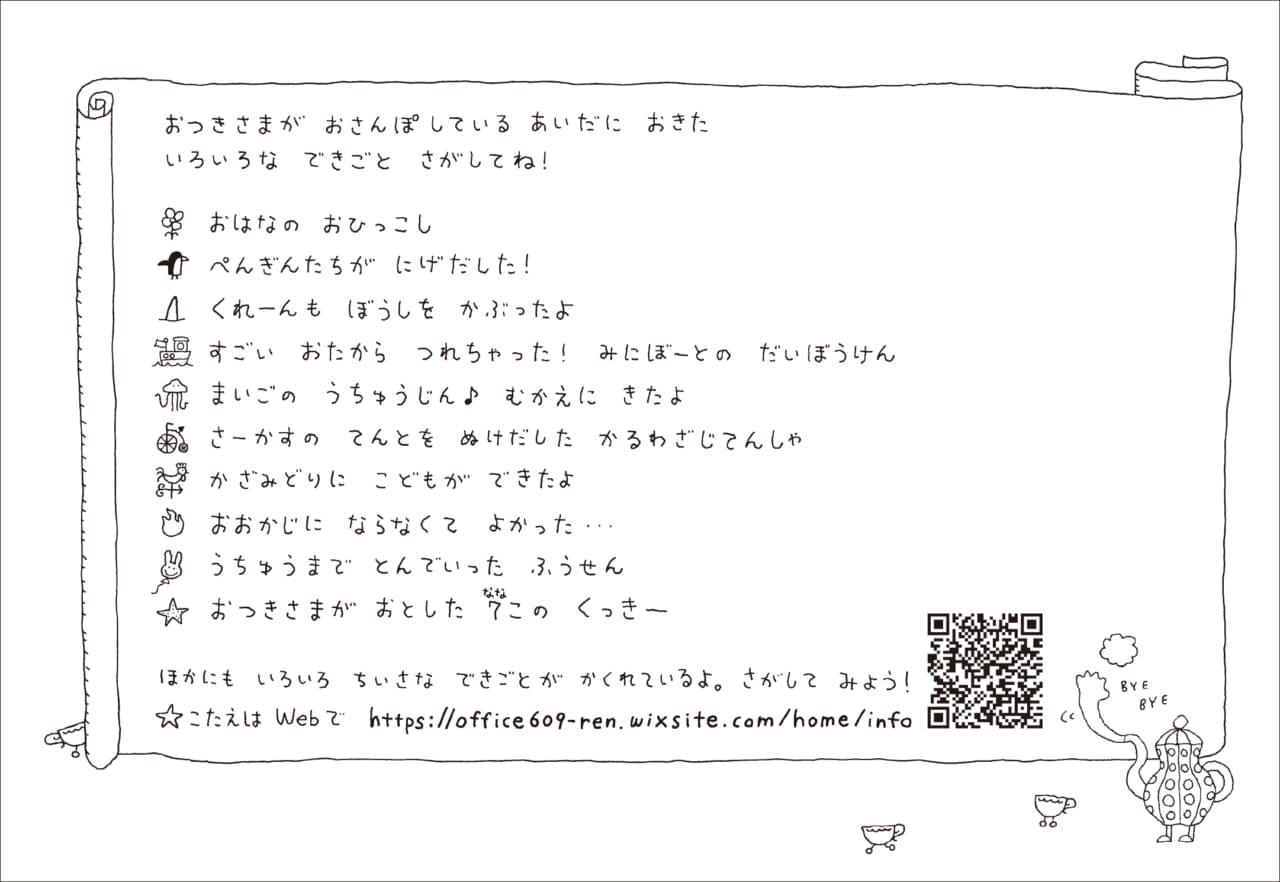 おつきさまが おさんぽしている あいだに おきた
いろいろな できごと さがしてね!
おはなの おひっこし
ぺんぎんたちが にげだした!
くれーんも ぼうしを かぶったよ
すごい おたから つれちゃった! みにぼーとの だいぼうけん
まいごの うちゅうじん♪ むかえに きたよ
さーかすの てんとを ぬけだした かるわざじてんしゃ
かざみどりに こどもが できたよ
おおかじに ならなくて よかった…
うちゅうまで とんでいった ふうせん
なな
おつきさまが おとした 7この くっきー
ほかにも いろいろ ちいさな できごとが かくれているよ。さがして みよう!
☆こたえは Webで https://office609-ren.wixsite.com/home/info
BYE
BYE